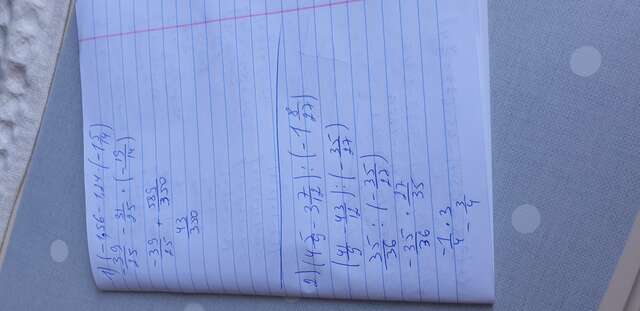 1) (-1,56 - 1,24 · (-1 5/14)
-39/25 - 31/25 · (-19/14)
-39/25 + 589/350
43/350
2) (4 5/9 - 3 7/12) : (-1 8/27)
(41/9 - 43/12) : (-35/27)
35/36 : (-35/27)
-35/36 · 27/35
-1/4 · 3
-3/4